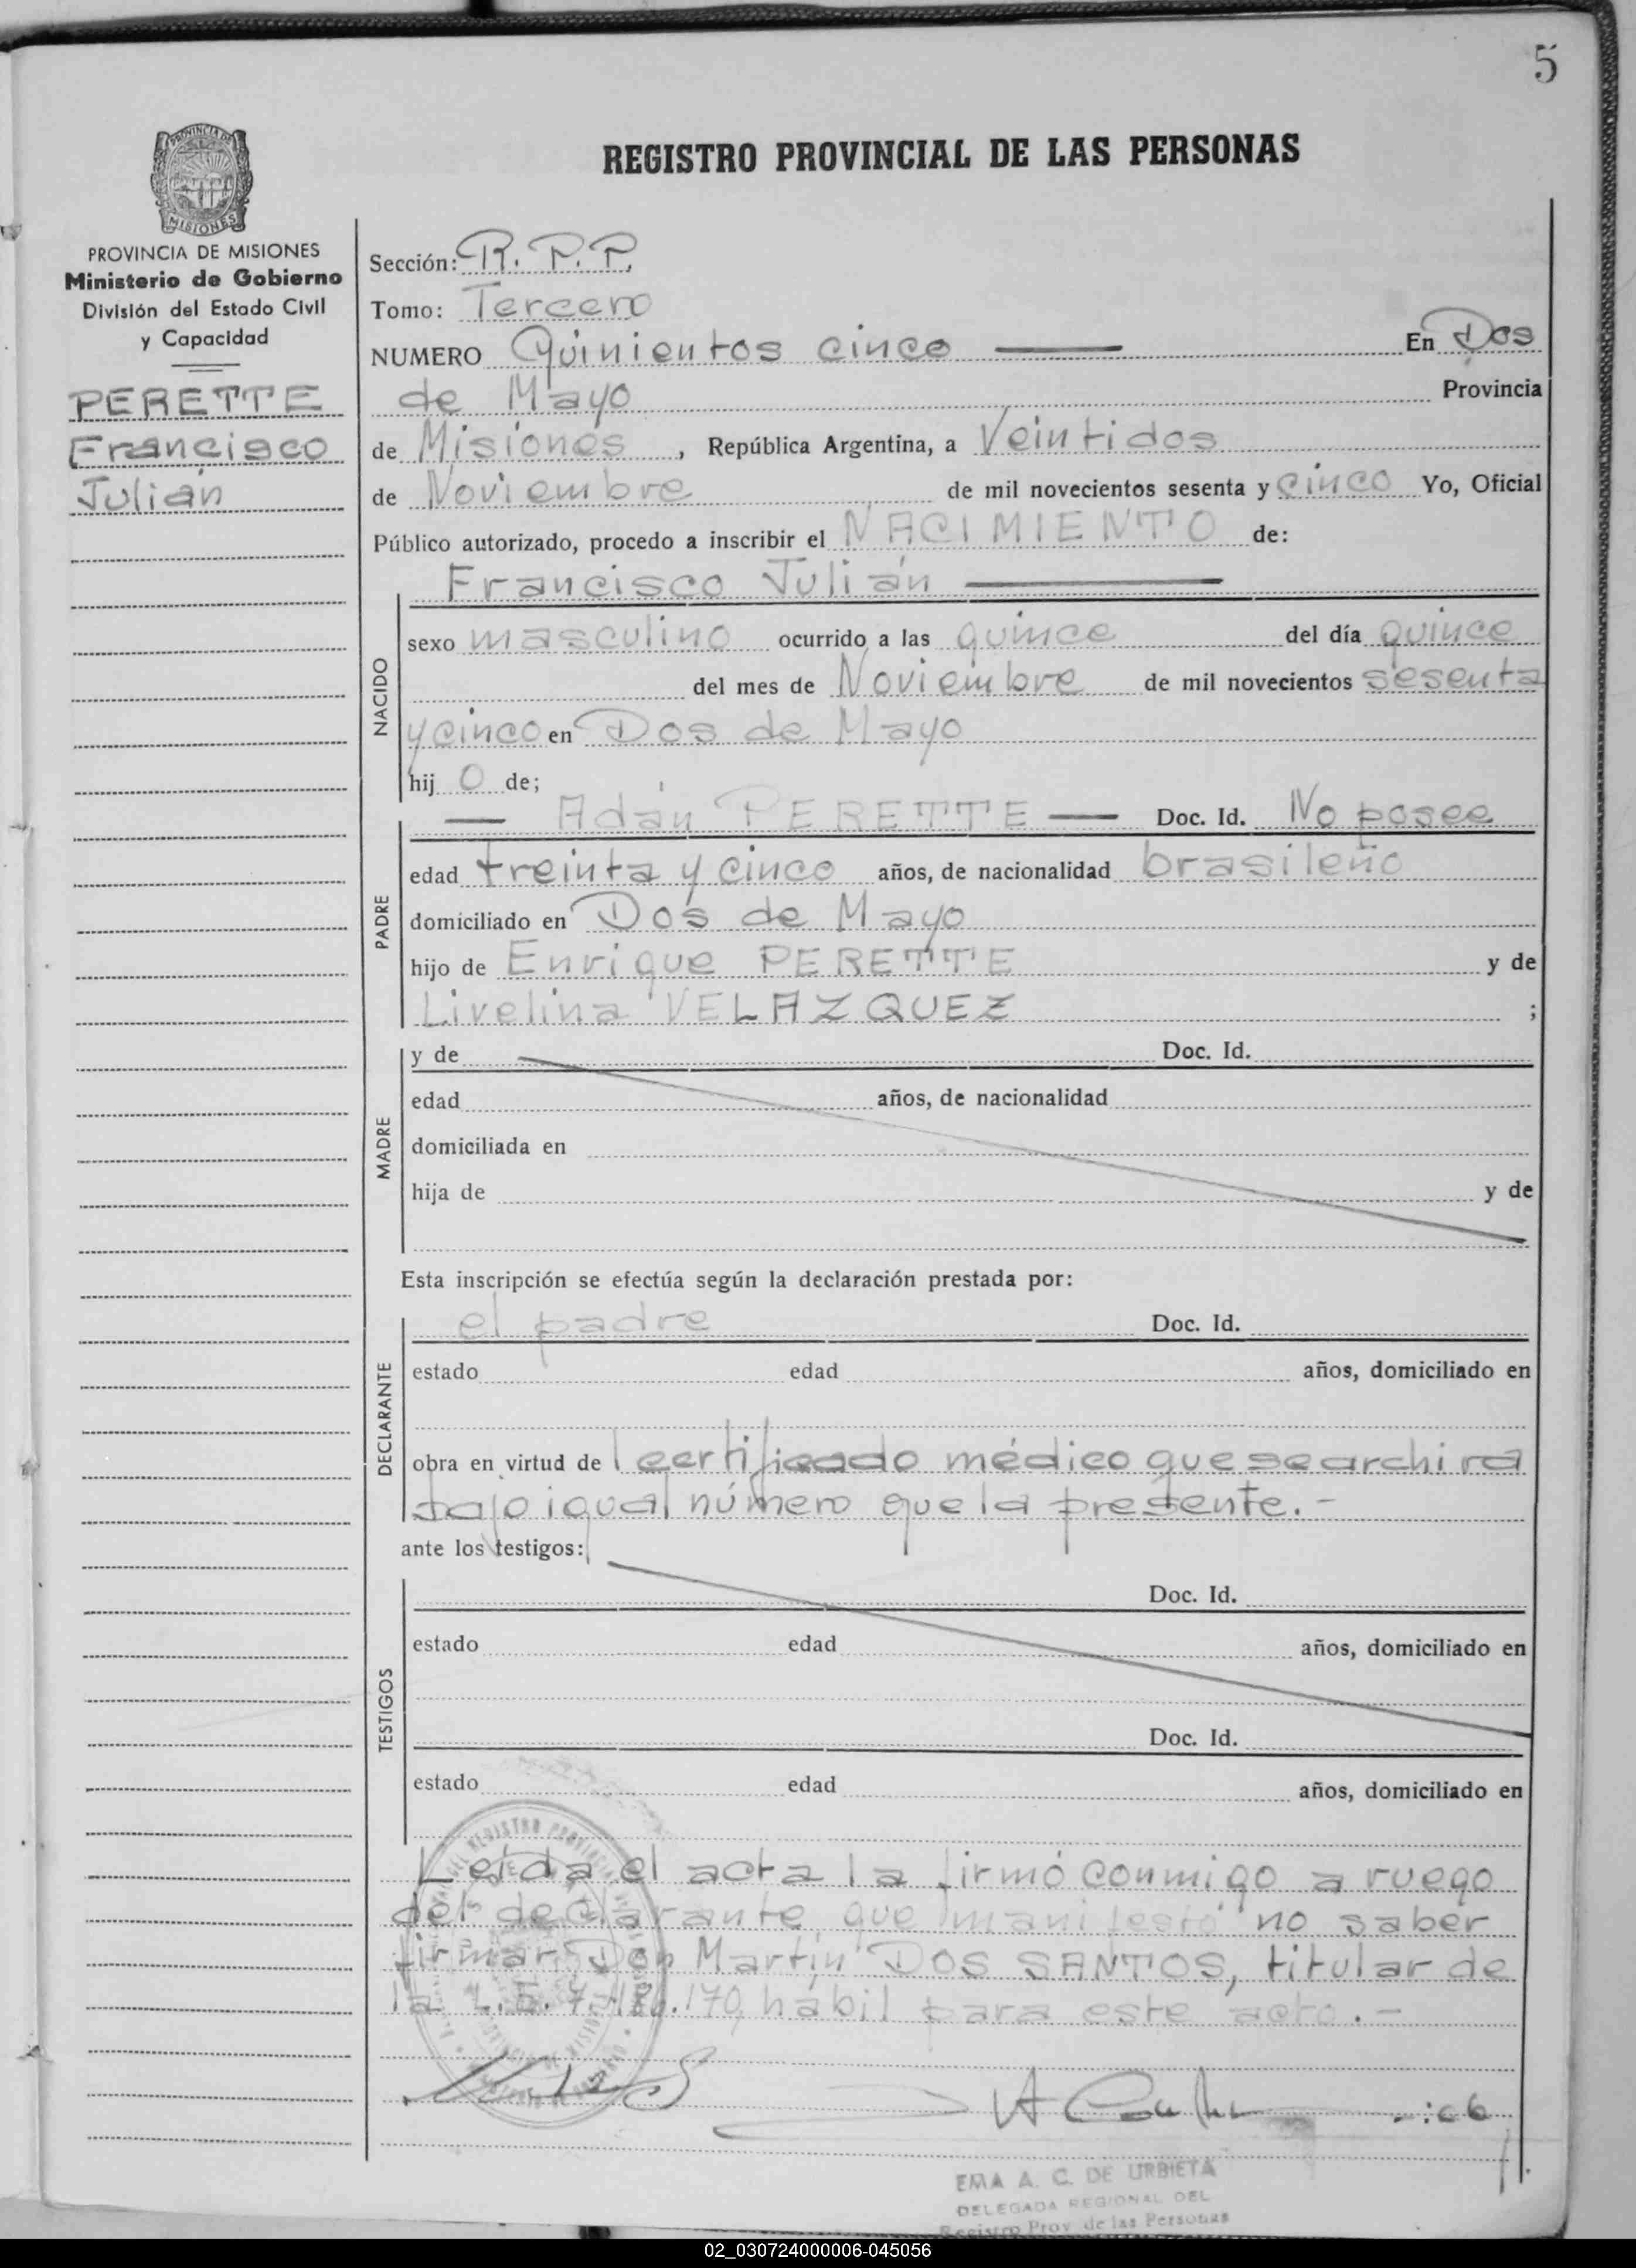 5
REGISTRO PROVINCIAL DE LAS PERSONAS
PROVINCIA DE MISIONES
Ministerio de Gobierno
División del Estado Civil
y Capacidad
PERETTE
Francisco
Julián
Sección: R. P. P.
Tomo: Tercero
NUMERO Quinientos cinco — En Dos
de Mayo Provincia
de Misiones, República Argentina, a Veintidos
de Noviembre de mil novecientos sesenta y cinco Yo, Oficial
Público autorizado, procedo a inscribir el NACIMIENTO de:
Francisco Julián —
NACIDO
sexo masculino ocurrido a las quince del día quince
del mes de Noviembre de mil novecientos sesenta
y cinco en Dos de Mayo
hij o de;
— Adán PERETTE — Doc. Id. No posee
PADRE
edad treinta y cinco años, de nacionalidad brasileño
domiciliado en Dos de Mayo
hijo de Enrique PERETTE y de
Livelina VELAZQUEZ ;
MADRE
y de Doc. Id.
edad años, de nacionalidad
domiciliada en
hija de y de
Esta inscripción se efectúa según la declaración prestada por:
el padre Doc. Id.
DECLARANTE
estado edad años, domiciliado en
obra en virtud de l certificado médico que se archiva
bajo igual número que la presente.-
ante los testigos:
TESTIGOS
Doc. Id.
estado edad años, domiciliado en
Doc. Id.
estado edad años, domiciliado en
Leída el acta la firmó conmigo a ruego
del declarante que manifestó no saber
firmar Don Martín DOS SANTOS, titular de
la L.E. 170, hábil para este acto.-
EMA A. C. DE URBIETA
DELEGADA REGIONAL DEL
Registro Prov. de las Personas
02_030724000006-045056